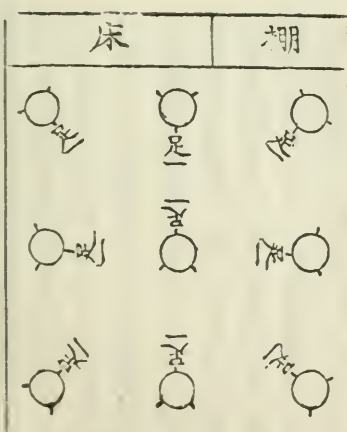 棚
一足
一足
一足
床
足一
一足
一足
一足
一足
一足